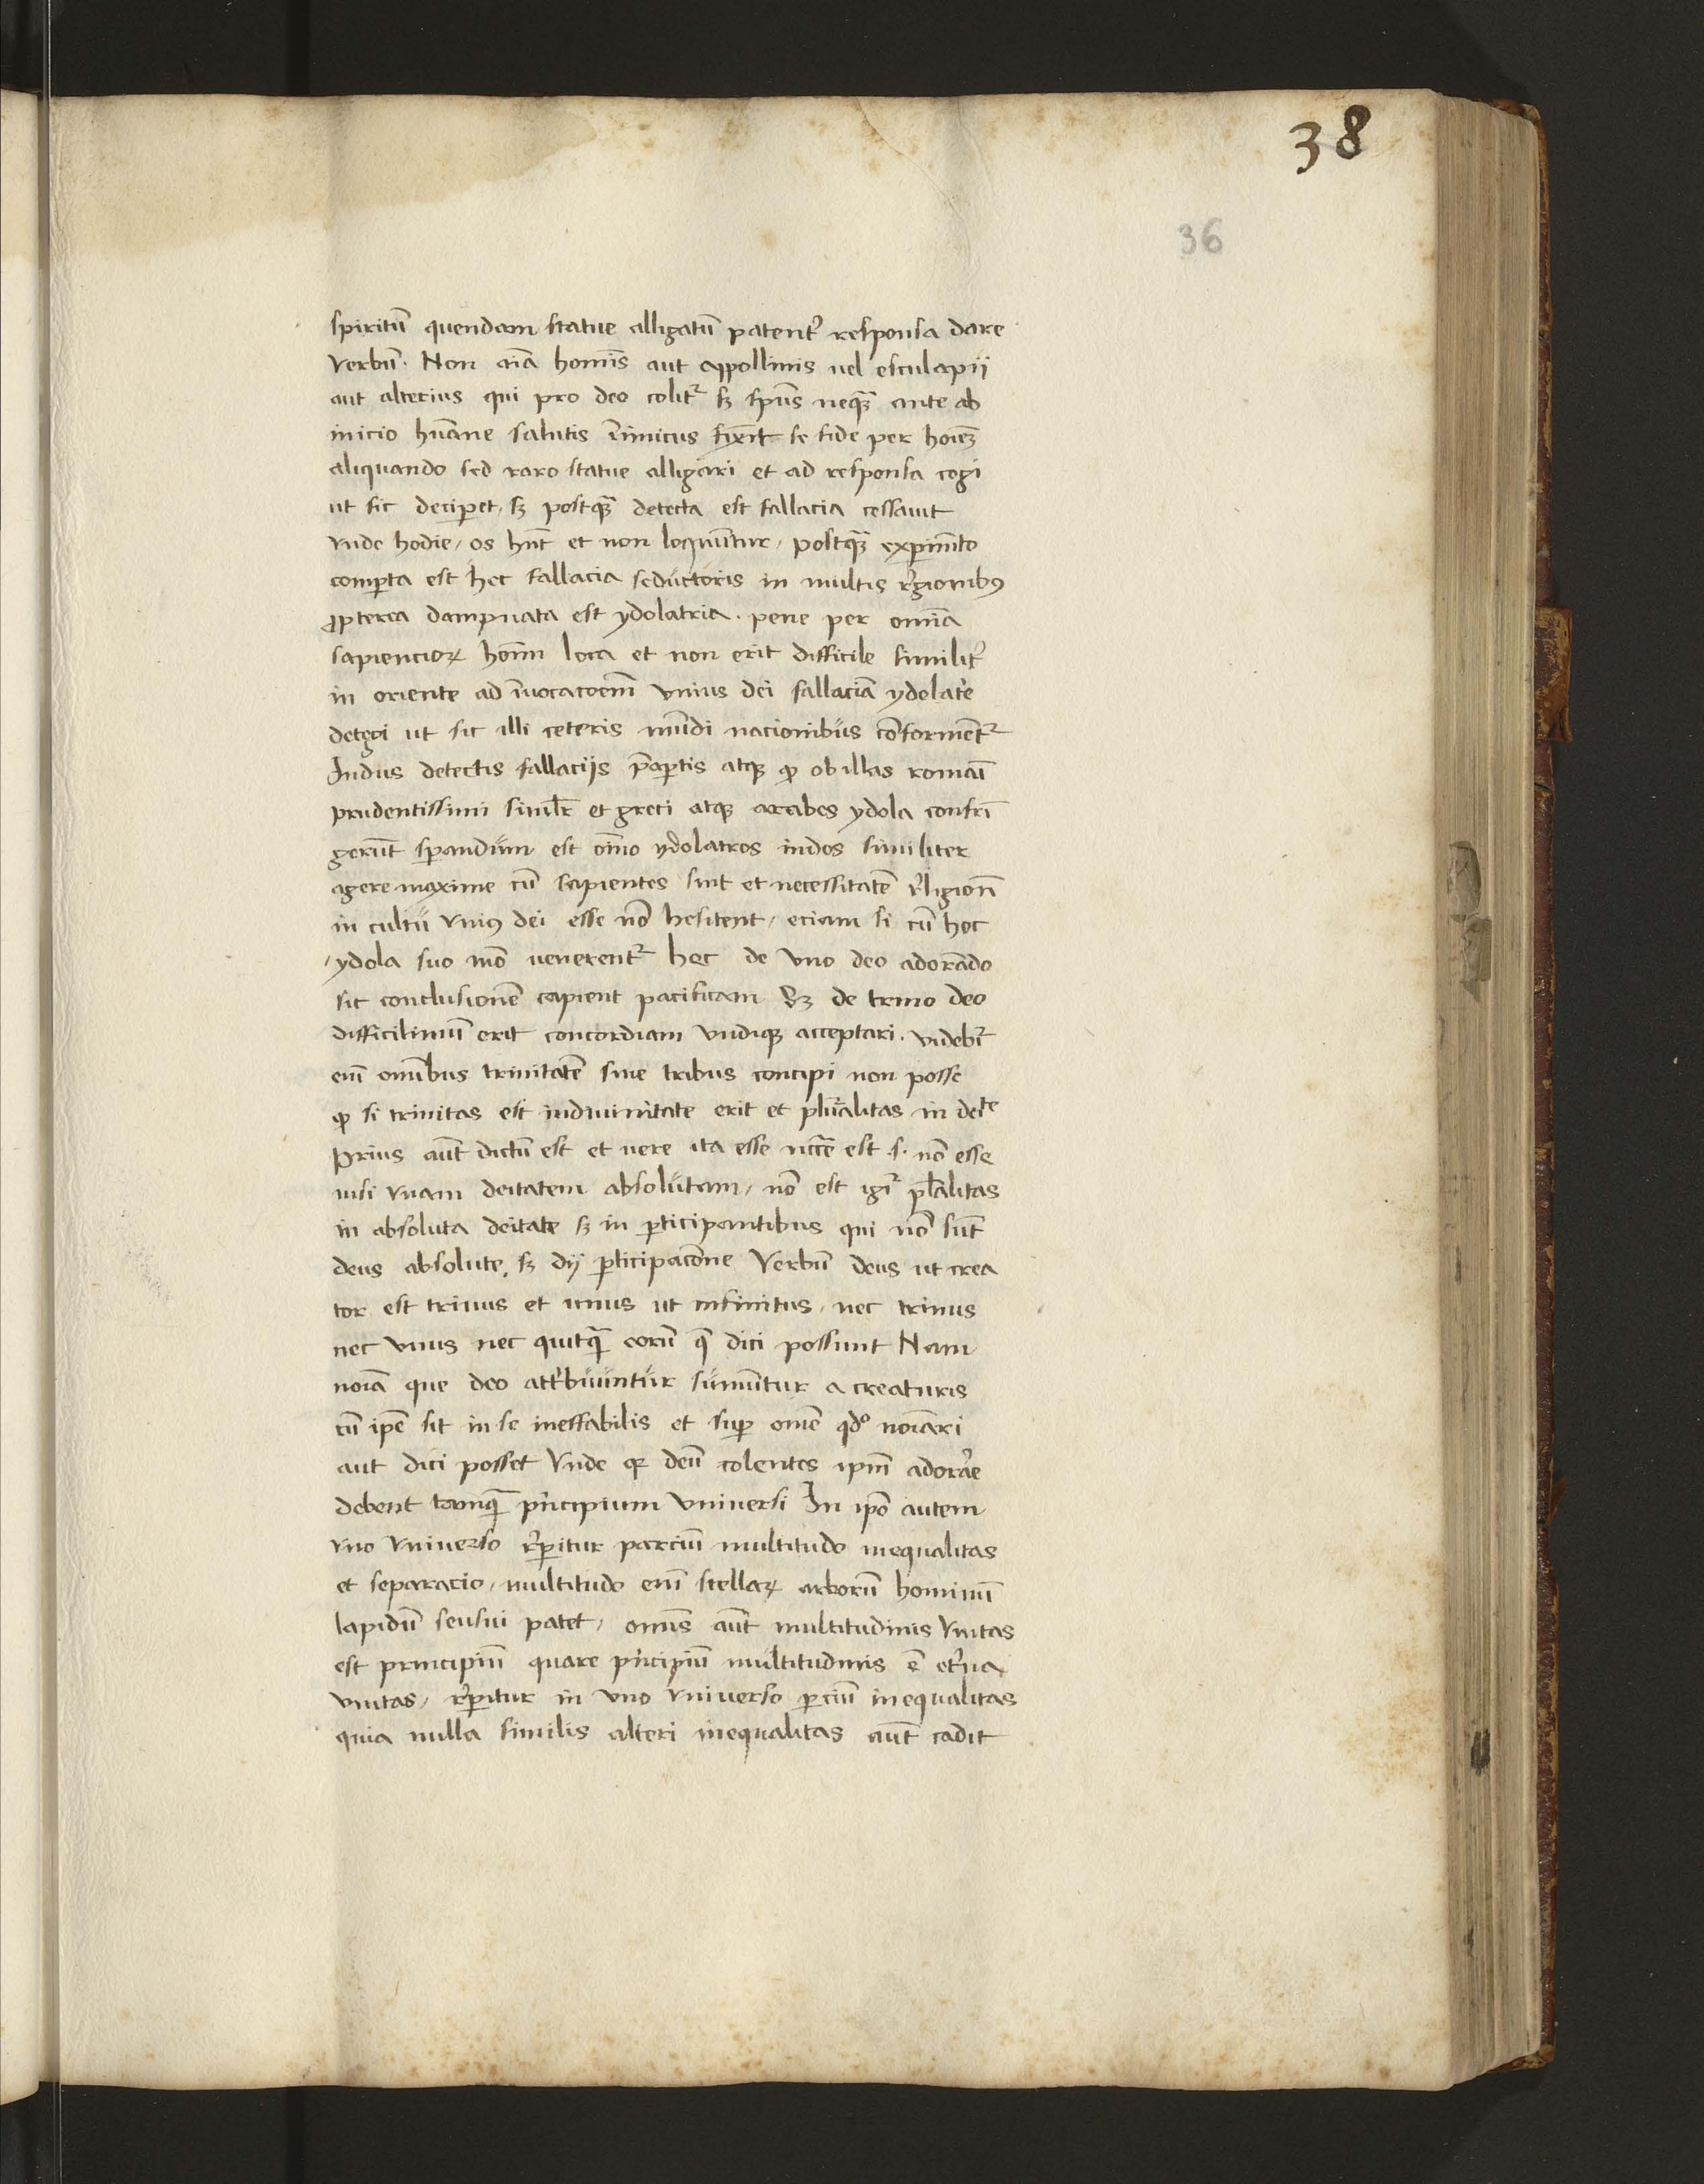 38
36
spiritū quendam statue alligatū patenť responsa dare
Verbū. Non aīa homīs aut appollinis uel esculapii
aut alterius qui pro deo colit᷑ sꝫ spūs nequā ante ab
inicio hūane salutis īnimicus fīxit se fide per hoīeꝫ
aliquando sed raro statue alligari et ad responsa cogi
ut sic deciꝑet, sꝫ postqȝ detecta est fallacia cessauit
vnde hodie, os hn̄t et non loquūtur, postqȝ expim̄to
comꝑta est hec fallacia seductoris in multis r̄gionibꝯ
ꝓpterea dampnata est ydolatria. pene per omīa
sapiencioꝝ hoīm loca et non erit difficile similiť
in oriente ad īuocacoem̄ vnius dei fallaciā ydolatr̄e
detegi ut sic illi ceteris mūdi nacionibus cōforment᷑
Indus detectis fallacijs p̄aꝑtis atqꝫ ꝙ ob illas romāi
prudentissimi simil̄r et greci atqꝫ arabes ydola confrī
gerūt sꝑandum est oīno ydolatros indos similiter
agere maxime cū sapientes sint et necessitatē r̄ligiōn̄
in cultu vniꝯ dei esse nō hesitent, eciam si cū hoc
ydola suo mō uenerent᷑ hec de vno deo adorādo
sic conclusionē capient pacificam Sꝫ de trino deo
difficilimū erit concordiam vndiqꝫ acceptari. videbit᷑
enī omībus trinitatē sine tribus concipi non posse
ꝙ si trinitas est indiuinitate erit et pluralitas in deite
Prius aūt dictū est et uere ita esse nccē est .s. nō esse
nisi vnam deitatem absolutam, nō est igit᷑ pl̄alitas
in absoluta deitate sꝫ in ꝑticipantibus qui nō sūt
deus absolute, sꝫ dij ꝑticipacōne Verbū deus ut crea
tor est trinus et unus ut infinitus, nec trinus
nec vnus nec quitqȝ eorū q̄ dici possunt Nam
noīa que deo attribuuntur sumūtur a creaturis
cū ipē sit in se ineffabilis et suꝑ omē qdº noīari
aut dici posset Vnde qꝛ deū colentes ipm̄ adorār̄e
debent tanqȝ principium vniuersi In ipō autem
vno vniuerso r̄ꝑitur parciū multitudo inequalitas
et separacio, multitudo enī stellaꝝ arborū hominū
lapidū sensui patet, omīs aūt multitudinis vnitas
est principiū quare principiū multitudinis ē et̄na
vnitas, r̄ꝑitur in vno vniuerso ꝑciū inequalitas
quia nulla similis alteri inequalitas aūt cadit